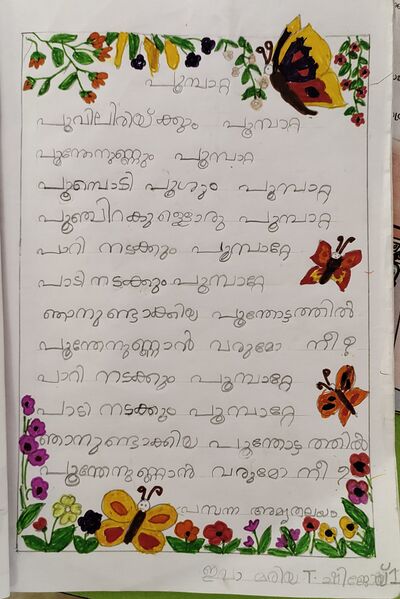 പൂമ്പാറ്റ
പൂവിലിരിയ്ക്കും പൂമ്പാറ്റ
പൂന്തേനുണ്ണും പൂമ്പാറ്റ
പൂമ്പൊടി പൂശും പൂമ്പാറ്റ
പൂഞ്ചിറകുള്ളൊരു പൂമ്പാറ്റ
പാറി നടക്കും പൂമ്പാറ്റേ
പാടി നടക്കും പൂമ്പാറ്റേ
ഞാനുണ്ടാക്കിയ പൂന്തോട്ടത്തിൽ
പൂന്തേനുണ്ണാൻ വരുമോ നീ ?
പാറി നടക്കും പൂമ്പാറ്റേ
പാടി നടക്കും പൂമ്പാറ്റേ
ഞാനുണ്ടാക്കിയ പൂന്തോട്ടത്തിൽ
പൂന്തേനുണ്ണാൻ വരുമോ നീ ?
പ്രസന്ന അമൃതലയം
ഇവാ മരിയ T.